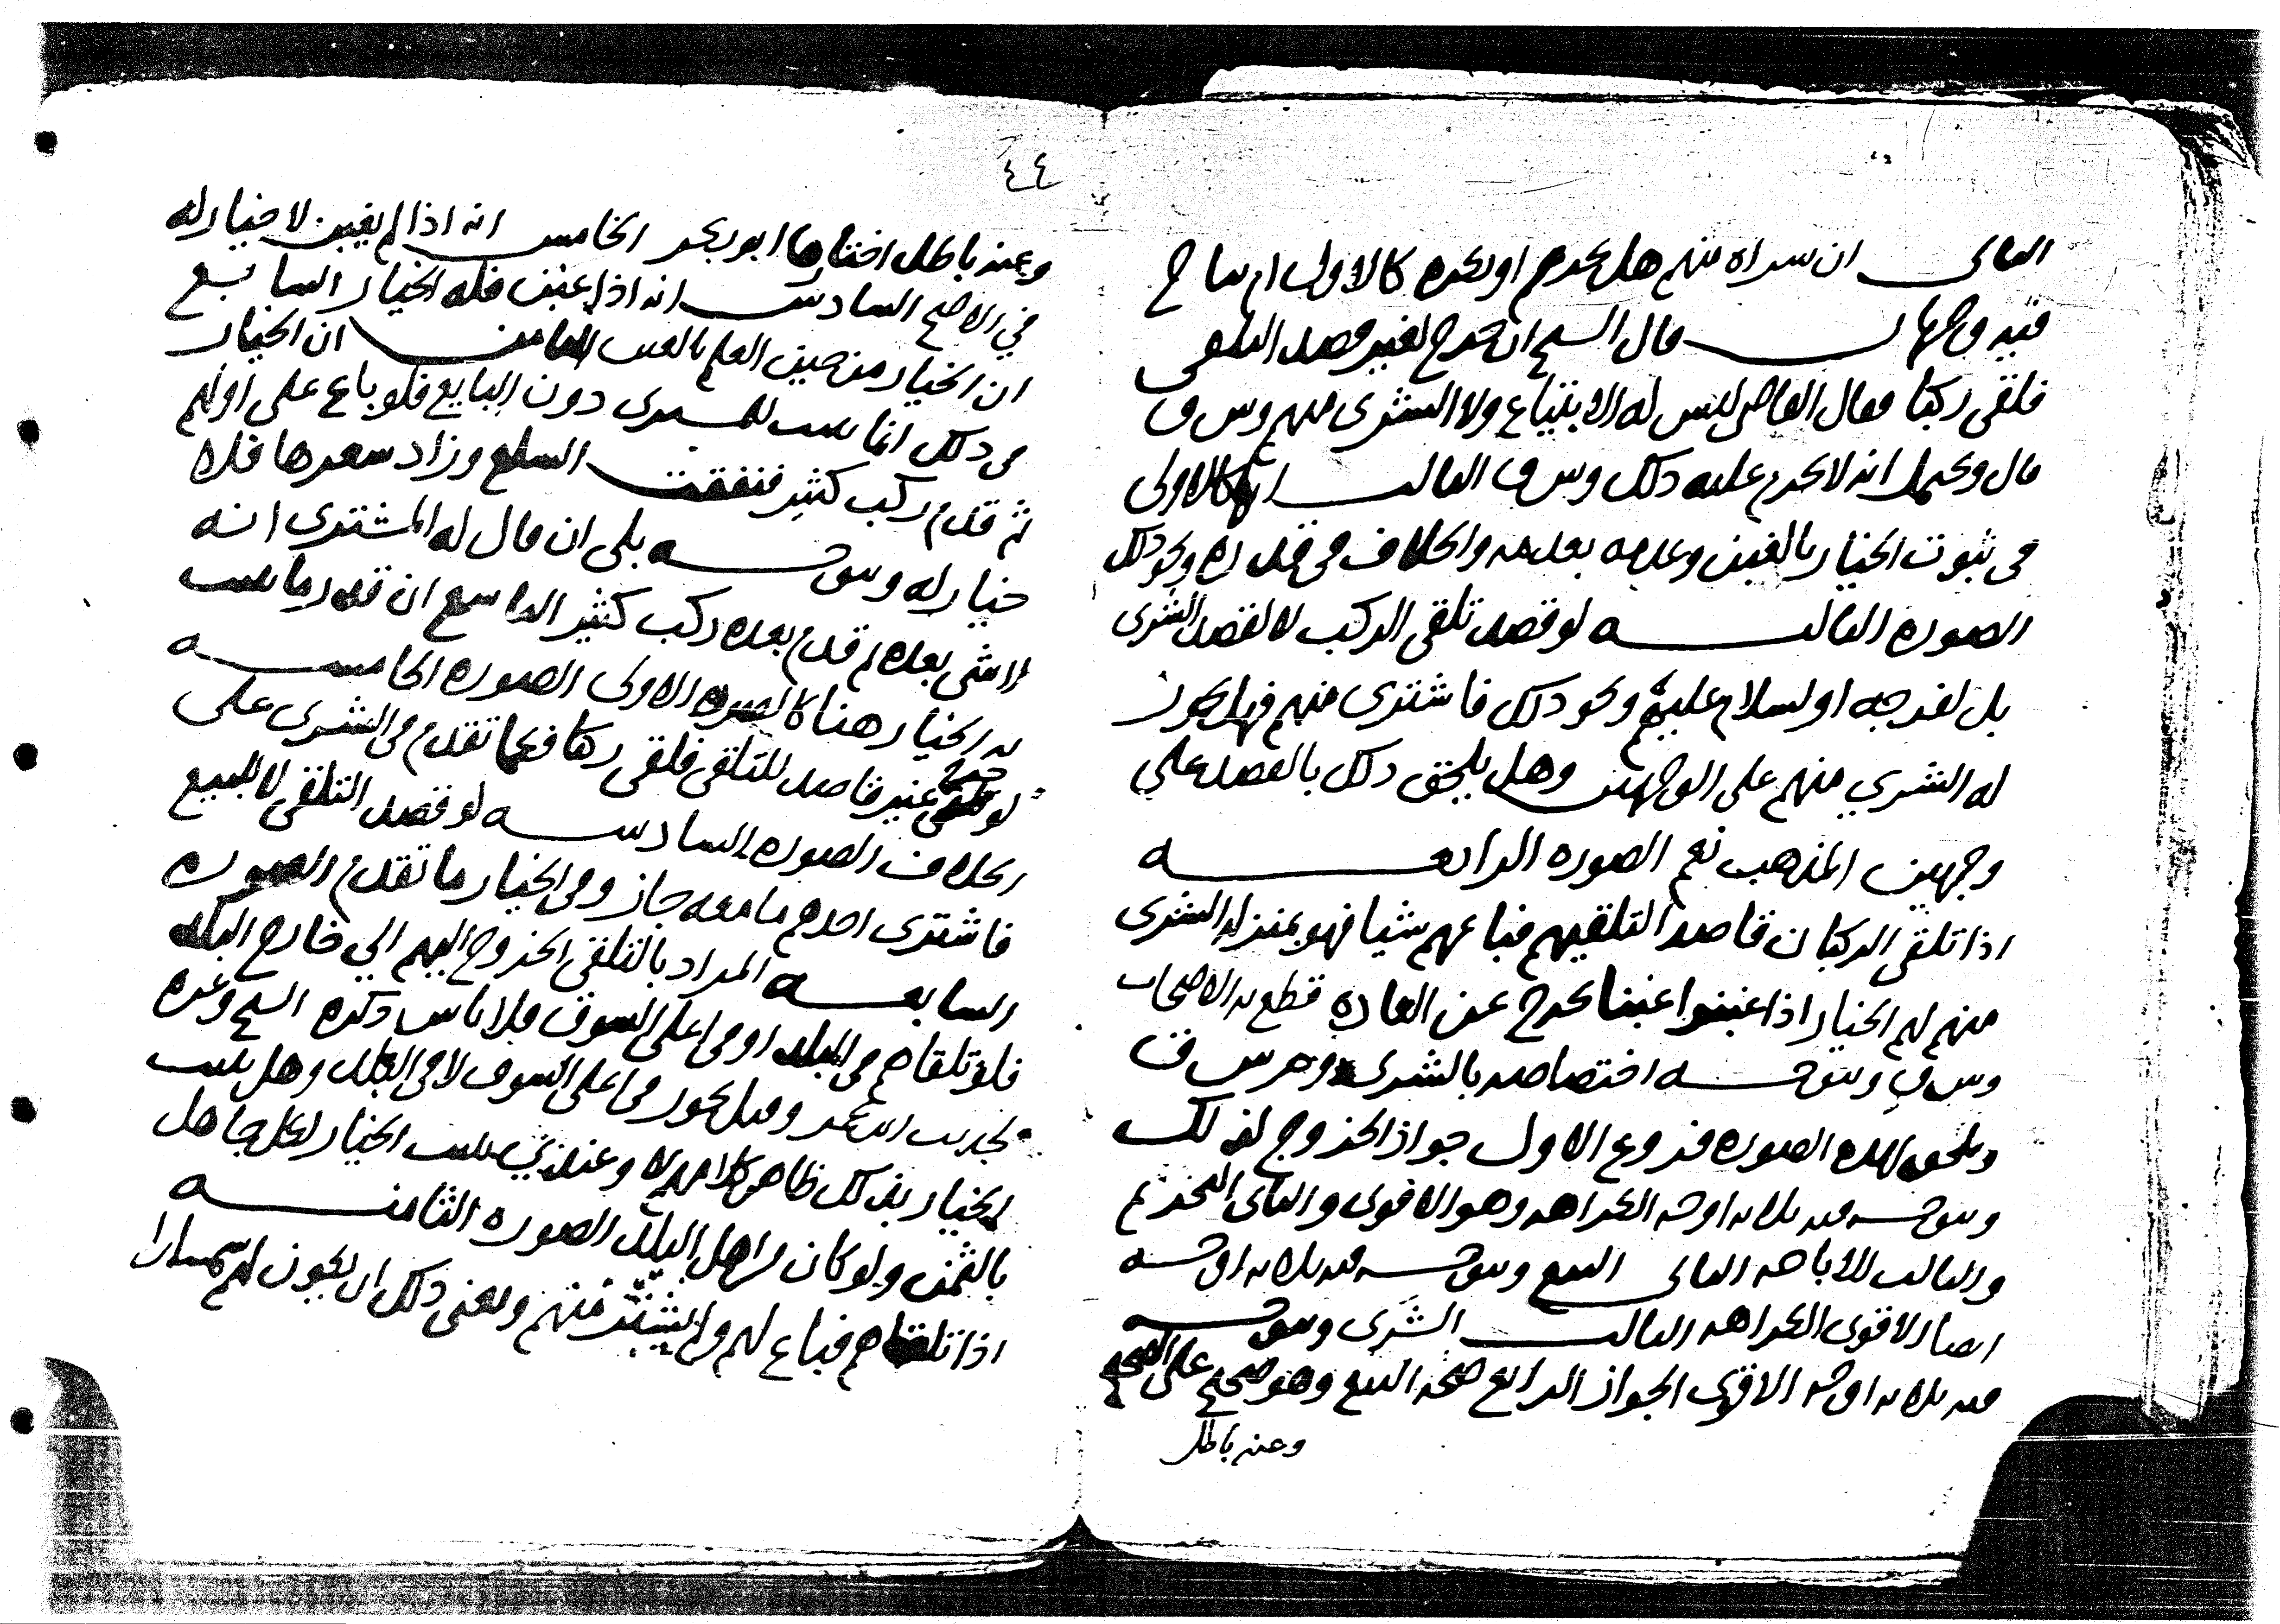 الثانى ان شراه منهم هل يحرم او يكره كالاول ام يباح
فيه وجهان قال الشيخ ان خرج لغير قصد التلقى
فلقى ركبا فقال القاضى ليس له الابتياع ولا الشرى منهم وس ف
قال ويحتمل انه لا يحرم عليه ذلك وس ف الثالث انها كالاولى
فى ثبوت الخيار بالغبن وعدمه بعدمه والخلاف فى قدره ونحو ذلك
الصوره الثالثه لو قصد تلقى الركب لا لقصد الشرى
بل لفرجه او لسلام عليهم ونحو ذلك فاشترى منهم فهل يجوز
له الشري منهم على الوجهين وهل يلحق ذلك بالقصد علي
وجهين المذهب نعم الصوره الرابعه
اذا تلقى الركبان قاصدا لتلقيهم فباعهم شيا فهو بمنزله الشرى
منهم لهم الخيار اذا غبنوا غبنا يخرج عن العاده قطع به الاصحاب
وس ف ويتوجه اختصاصه بالشرى وخرس ف
ويلحق بهذه الصوره فروع الاول جواز الخروج لذلك
ويتوجه فيه ثلاثه اوجه الكراهه وهو الاقوى والثانى التحريم
والثالث للاباحه الثانى البيع ويتوجه فيه ثلاثه اوجه
ايضا الاقوى الكراهه الثالث الشرى ويتوجه
فيه ثلاثه اوجه الاقوى الجواز الرابع صحه البيع وهو صحيح على الصحيح
وعنه باطل
٤٤
وعنه باطل اختارها ابو بكر الخامس انه اذا لم يغبن لا خيار له
في الاصح السادس انه اذا غبن فله الخيار السابع
ان الخيار من حين العلم بالغبن الثامن ان الخيار
فى ذلك انما يثبت للمشترى دون البايع فلو باع على اولهم
ثم قدم ركب كثير فنفقت السلع وزاد سعرها فلا
خيار له ويتوجه بلى ان قال له المشترى انه
لا شى بعده ثم قدم بعده ركب كثير التاسع ان قدر ما يثبت
به الخيار هنا كالصوره الاولى الصوره الخامسه
لو خرج غير قاصد للتلقى فلقى ركبا فكما تقدم فى الشرى على
الخلاف الصوره السادسه لو قصد التلقى لا للبيع
فاشترى احدهم ما معه جاز وفى الخيار ما تقدم الصوره
السابعه المراد بالتلقى الخروج اليهم الي خارج البلد
فلو تلقاهم فى البلد او فى اعلى السوق فلا باس ذكره الشيخ وغيره
لحديث ابن عمر وقيل يجوز فى اعلى السوق لا فى البلد وهل يثبت
الخيار بذلك ظاهر كلامهم لا وعندي يثبت الخيار لكل جاهل
بالثمن ولو كان من اهل البلد الصوره الثامنه
اذا تلقاهم فباع لهم ولم يشتر منهم ومعنى ذلك ان يكون لهم سمسارا